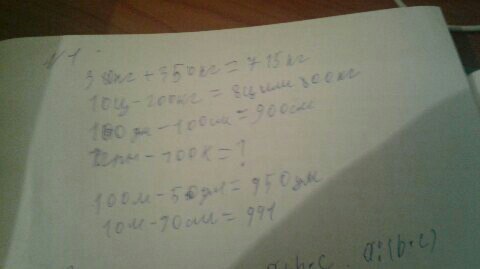 №1
380кг + 350кг = 715кг
10ц - 200кг = 8ц или 800кг
100дм - 100см = 900см
- 700к = ?
100м - 50дм = 950дм
10м - 90см = 991
a:(b·c)